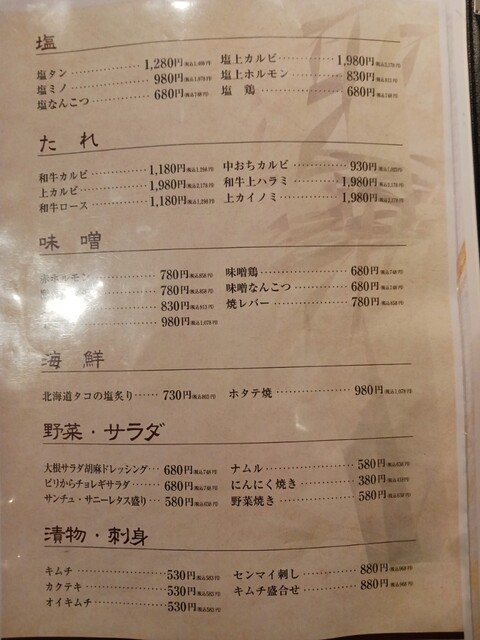 塩
塩タン 1,280円(税込1,408円)
塩ミノ 980円(税込1,078円)
塩なんこつ 680円(税込748円)
塩上カルビ 1,980円(税込2,178円)
塩上ホルモン 830円(税込913円)
塩 鶏 680円(税込748円)
たれ
和牛カルビ 1,180円(税込1,298円)
上カルビ 1,980円(税込2,178円)
和牛ロース 1,180円(税込1,298円)
中おちカルビ 930円(税込1,023円)
和牛上ハラミ 1,980円(税込2,178円)
上カイノミ 1,980円(税込2,178円)
味噌
ホルモン 780円(税込858円)
780円(税込858円)
830円(税込913円)
980円(税込1,078円)
味噌鶏 680円(税込748円)
味噌なんこつ 680円(税込748円)
焼レバー 780円(税込858円)
海鮮
北海道タコの塩炙り 730円(税込803円)
ホタテ焼 980円(税込1,078円)
野菜・サラダ
大根サラダ胡麻ドレッシング 680円(税込748円)
ピリからチョレギサラダ 680円(税込748円)
サンチュ・サニーレタス盛り 580円(税込638円)
ナムル 580円(税込638円)
にんにく焼き 380円(税込418円)
野菜焼き 580円(税込638円)
漬物・刺身
キムチ 530円(税込583円)
カクテキ 530円(税込583円)
オイキムチ 530円(税込583円)
センマイ刺し 880円(税込968円)
キムチ盛合せ 880円(税込968円)